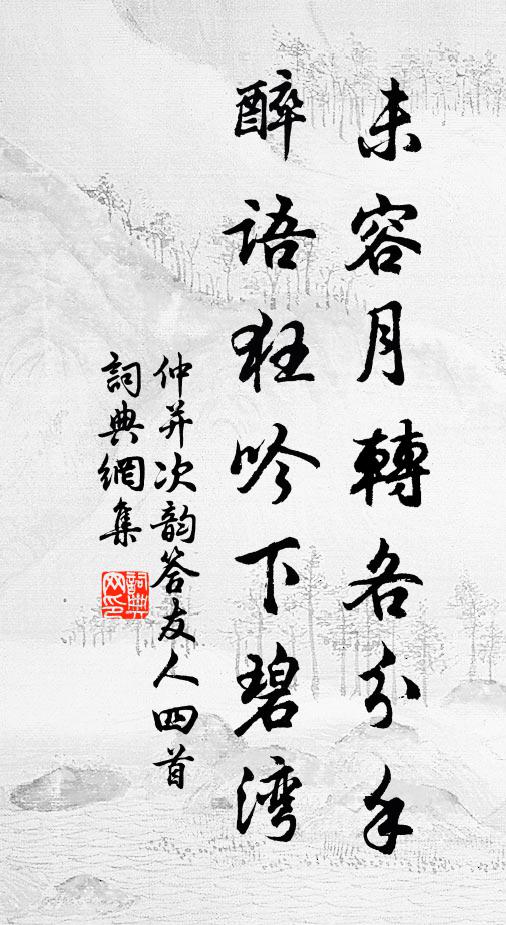 未容月轉各分手
醉語狂吟下碧灣
仲并次韵答友人四首
詞典網集
詞典网印